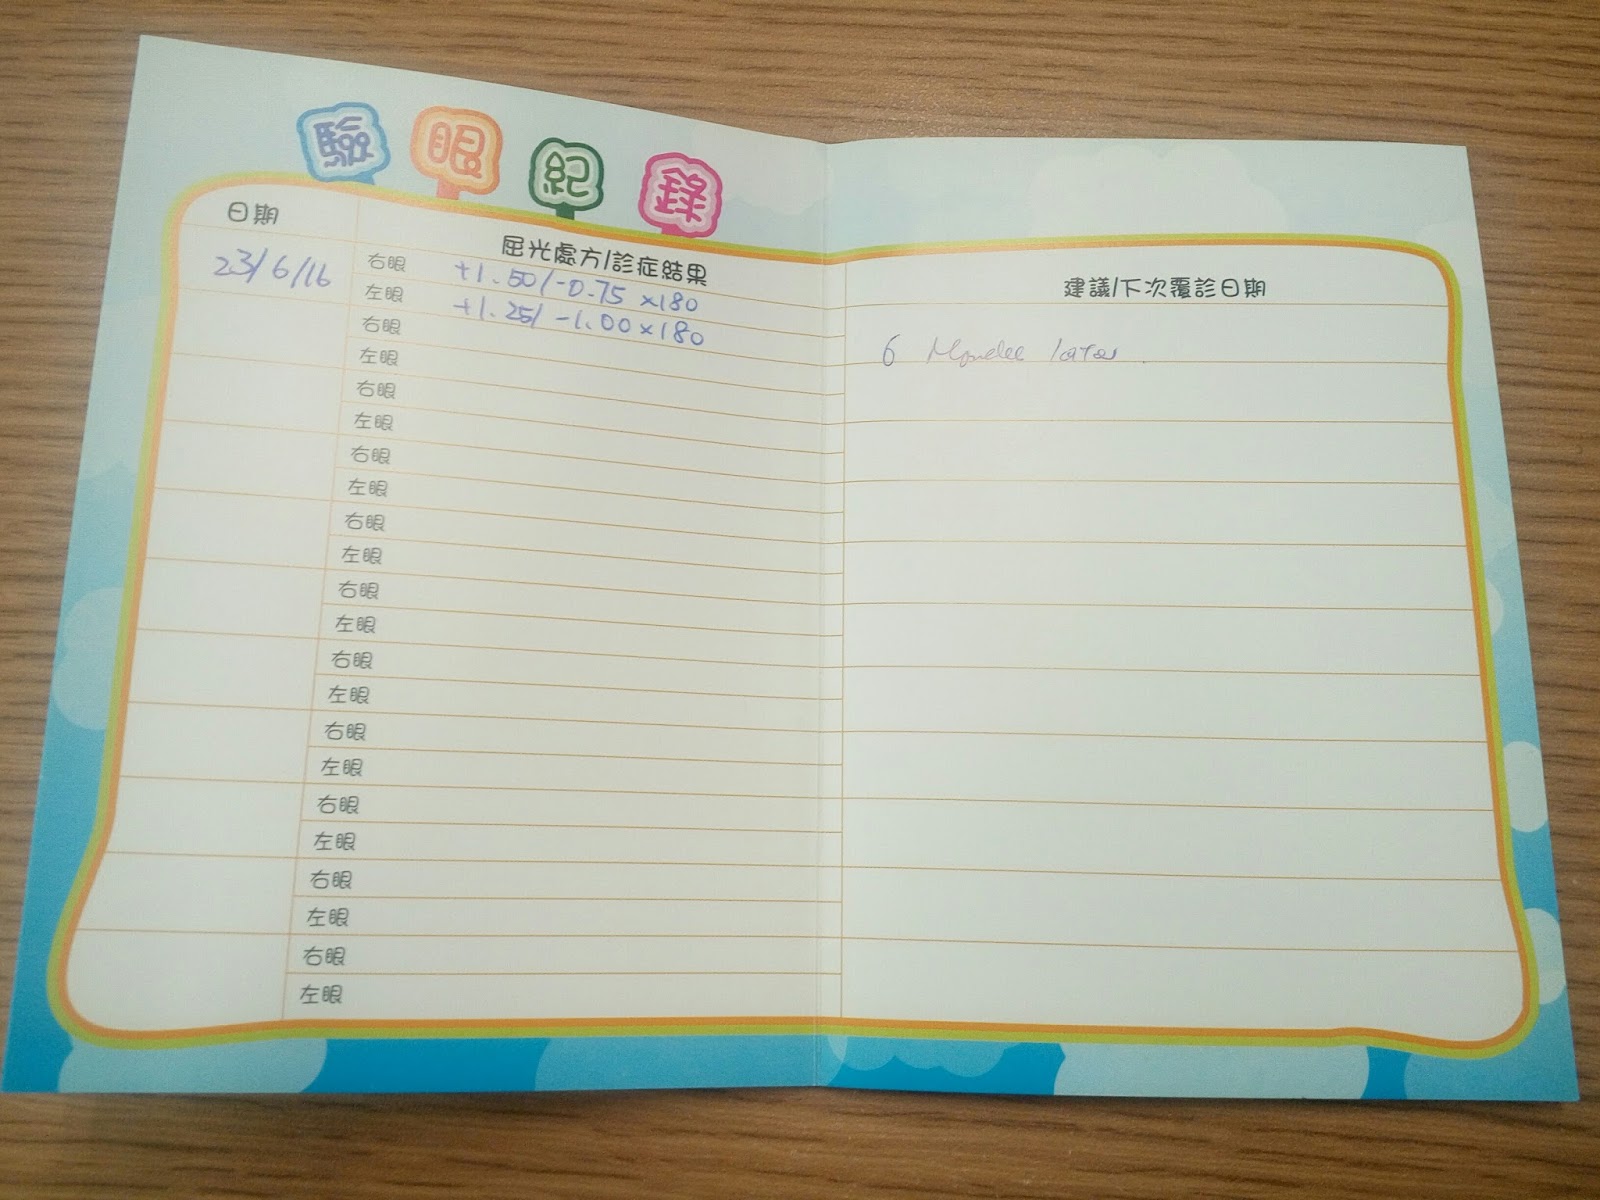 驗眼紀錄
日期
屈光處方/診症結果
建議/下次覆診日期
23/6/16
右眼 +1.50/-0.75 x180
左眼 +1.25/ -1.00x180
6 later
右眼
左眼
右眼
左眼
右眼
左眼
右眼
左眼
右眼
左眼
右眼
左眼
右眼
左眼
右眼
左眼
右眼
左眼
右眼
左眼